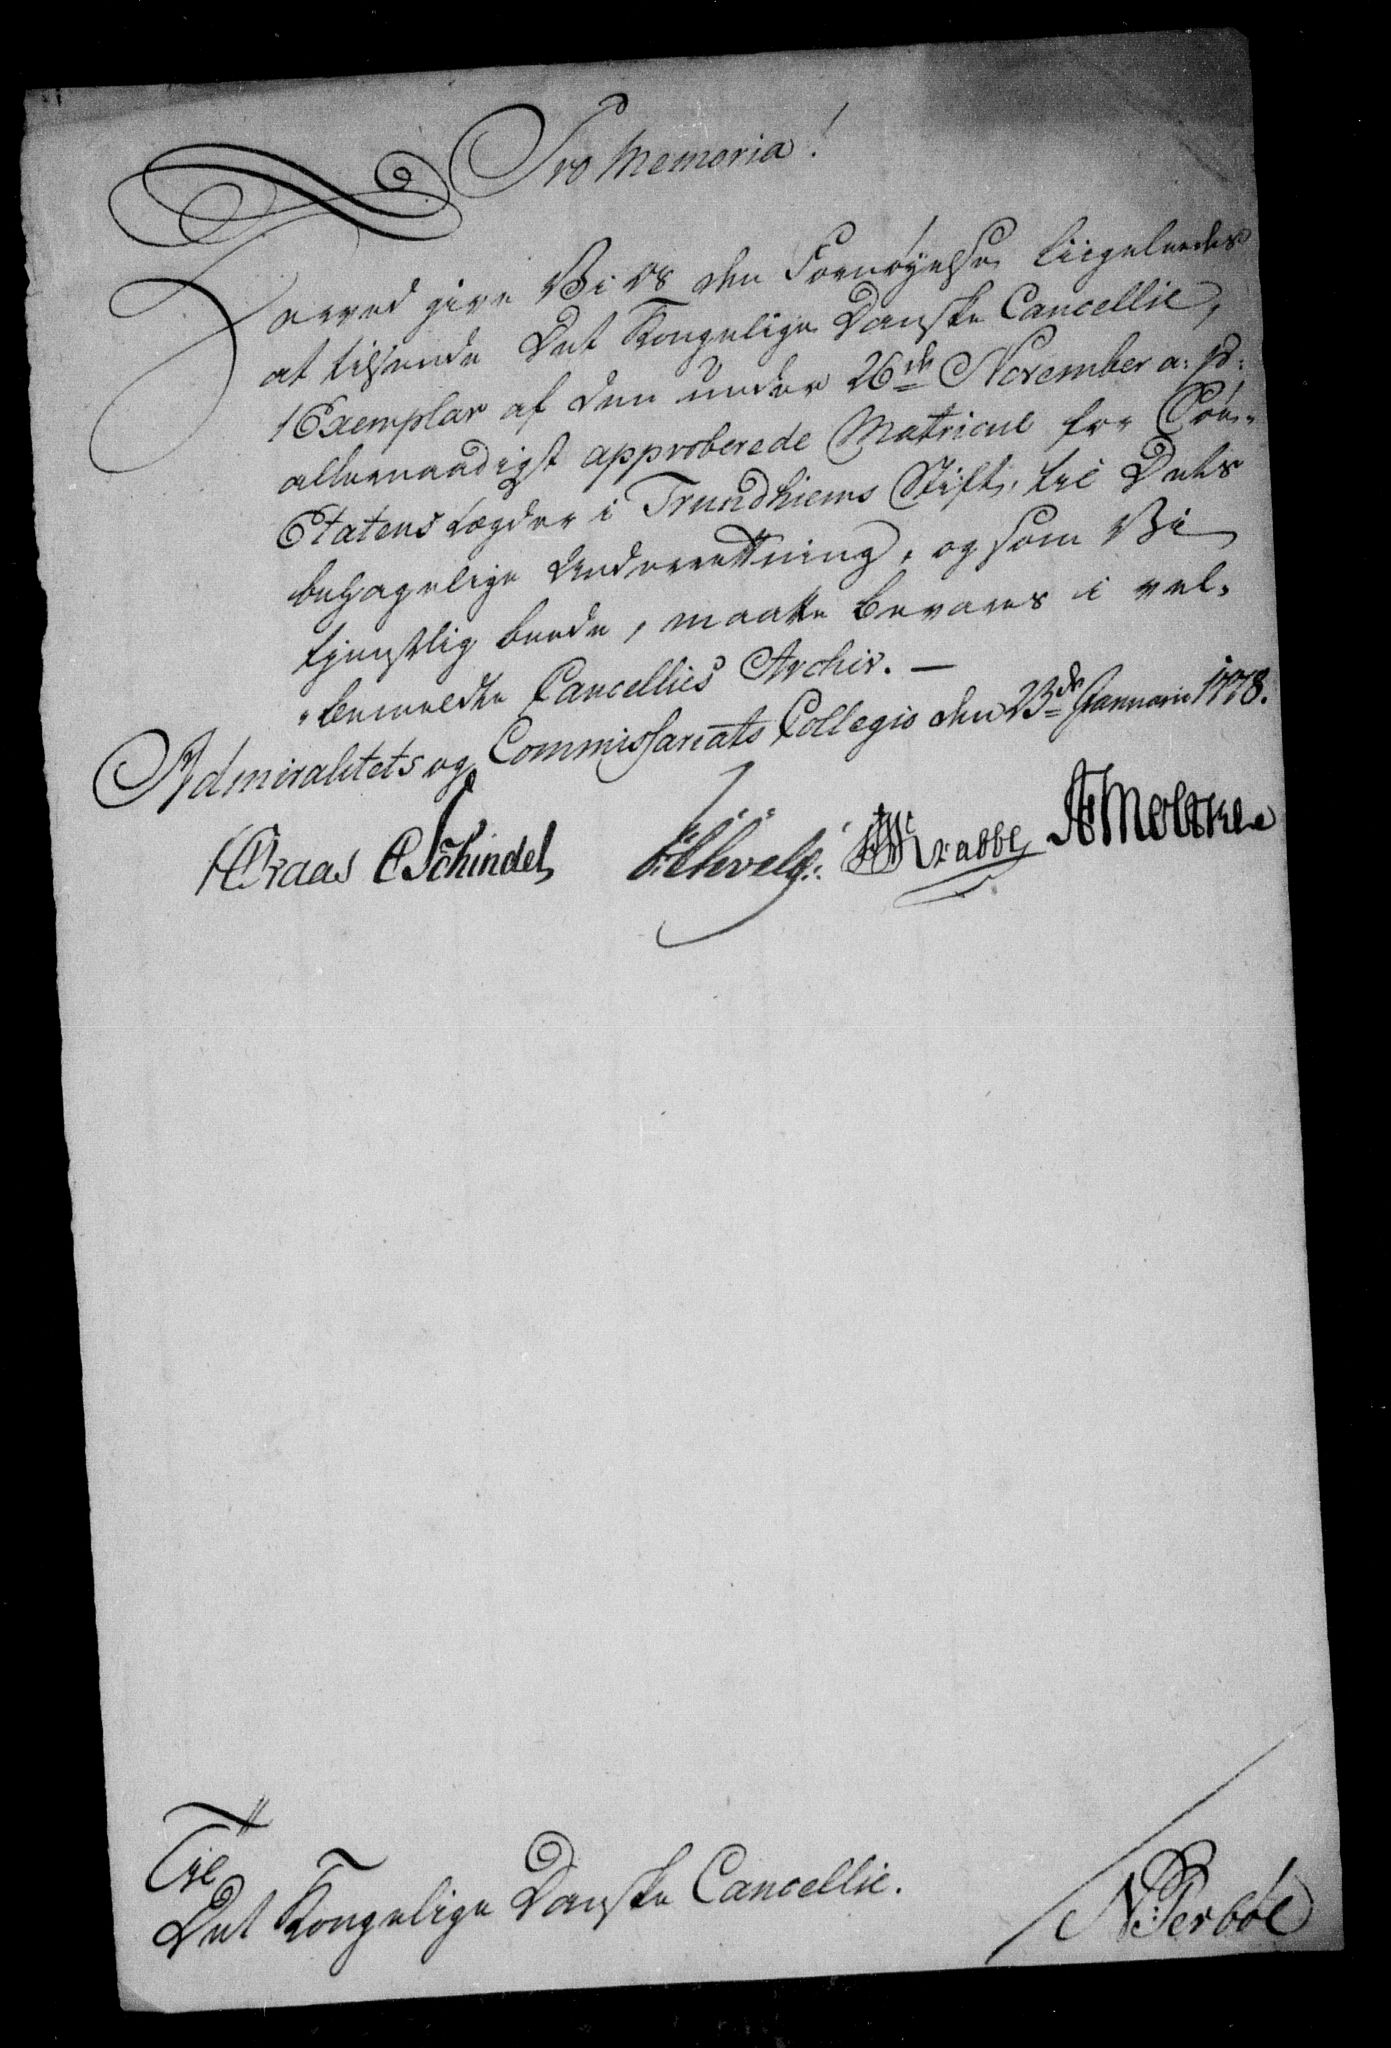 Pro Memoria!
Herved give Vi os den Fornøyelse liigeleedes
at tilsende Det Kongelige Danske Cancellie,
1 Exemplar af den under 26de November a: p:
allernaadigst approberede Matricul for Søe-
Etatens Lægder i Trundhiems Stift, til Dets
behagelige Underrettning, og som Vi
tjenstlig beede, maatte bevares i vel-
bemeldte Cancellies Archiv. —
Admiralitets og Commissariats Collegio den 23de Januarii 1778.
Kraas CSchindel Krabbe Moltke
Til
Det Kongelige Danske Cancellie.
N: Perbøl